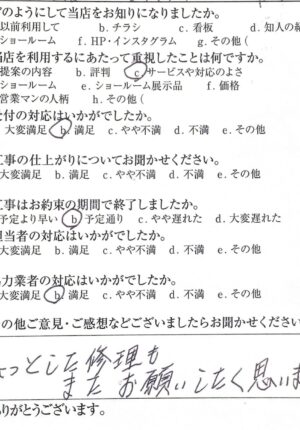 のようにして当店をお知りになりましたか。
以前利用して b. チラシ c. 看板 d. 知人の紹
ショールーム f. HP・インスタグラム g. その他 (
当店を利用するにあたって重視したことは何ですか。
提案の内容 b. 評判 c. サービスや対応のよさ
ショールーム e. ショールーム展示品 f. 価格
営業マンの人柄 h. その他 (
付の対応はいかがでしたか。
大変満足 b. 満足 c. やや不満 d. 不満 e. その他
工事の仕上がりについてお聞かせください。
大変満足 b. 満足 c. やや不満 d. 不満 e. その他
工事はお約束の期間で終了しましたか。
予定より早い b. 予定通り c. やや遅れた d. 大変遅れた
担当者の対応はいかがでしたか。
大変満足 b. 満足 c. やや不満 d. 不満 e. その他
力業者の対応はいかがでしたか。
大変満足 b. 満足 c. やや不満 d. 不満 e. その他
の他ご意見・ご感想などございましたらお聞かせください
ょっとした修理も
またお願いしたく思いま
りがとうございます。